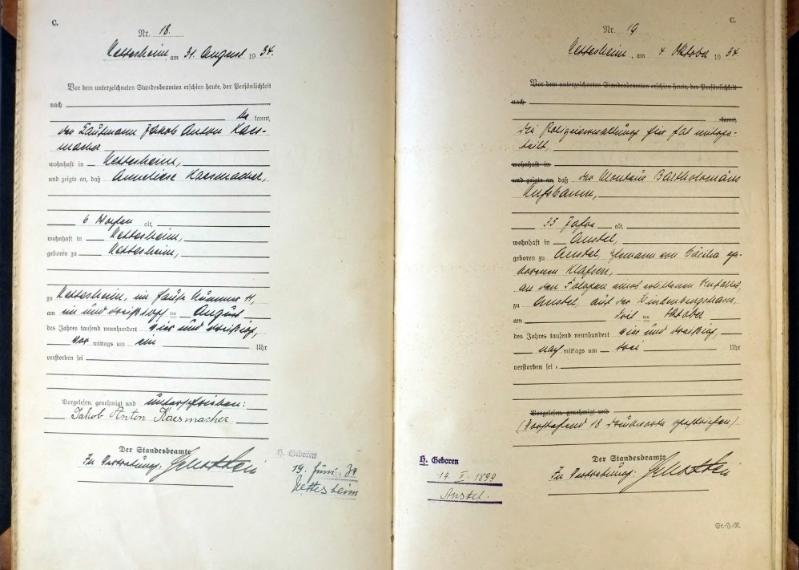 C.
Nr. 18.
Nettesheim, am 31. August 1934.
Vor dem unterzeichneten Standesbeamten erschien heute, der Persönlichkeit
nach
be kannt,
der Landmann Jakob Anton Kaes-
macher
wohnhaft in Nettesheim,
und zeigte an, daß Anneliese Kaesmacher,
6 Wochen alt,
wohnhaft in Nettesheim,
geboren zu Nettesheim,
zu Nettesheim, im Hause Nummer
am ein und dreißigsten August
des Jahres tausend neunhundert vier und dreißig,
vor mittags um ein Uhr
verstorben sei
Vorgelesen, genehmigt und unterschrieben:
Jakob Anton Kaesmacher
Der Standesbeamte
In Vertretung:
H. Geboren
19. Juni 34
Nettesheim
C.
Nr. 19
Nettesheim, am 4 Oktober 1934
Vor dem unterzeichneten Standesbeamten erschien heute, der Persönlichkeit
nach
kannt,
Die Polizeiverwaltung hier hat mitge-
teilt
wohnhaft in
und zeigte an, daß der Bartholomäus
Nußbaum,
35 Jahre alt,
wohnhaft in Anstel,
geboren zu Anstel, Ehemann von Cäcilia ge-
borenen
an den Folgen eines
zu Anstel, auf der Hindenburgstraße,
am drei ten Oktober
des Jahres tausend neunhundert vier und dreißig,
nach mittags um drei Uhr
verstorben sei.
Vorgelesen, genehmigt und
(Vorstehend 18 Druckworte gestrichen)
Der Standesbeamte
In Vertretung:
H. Geboren
14 1899
Anstel.